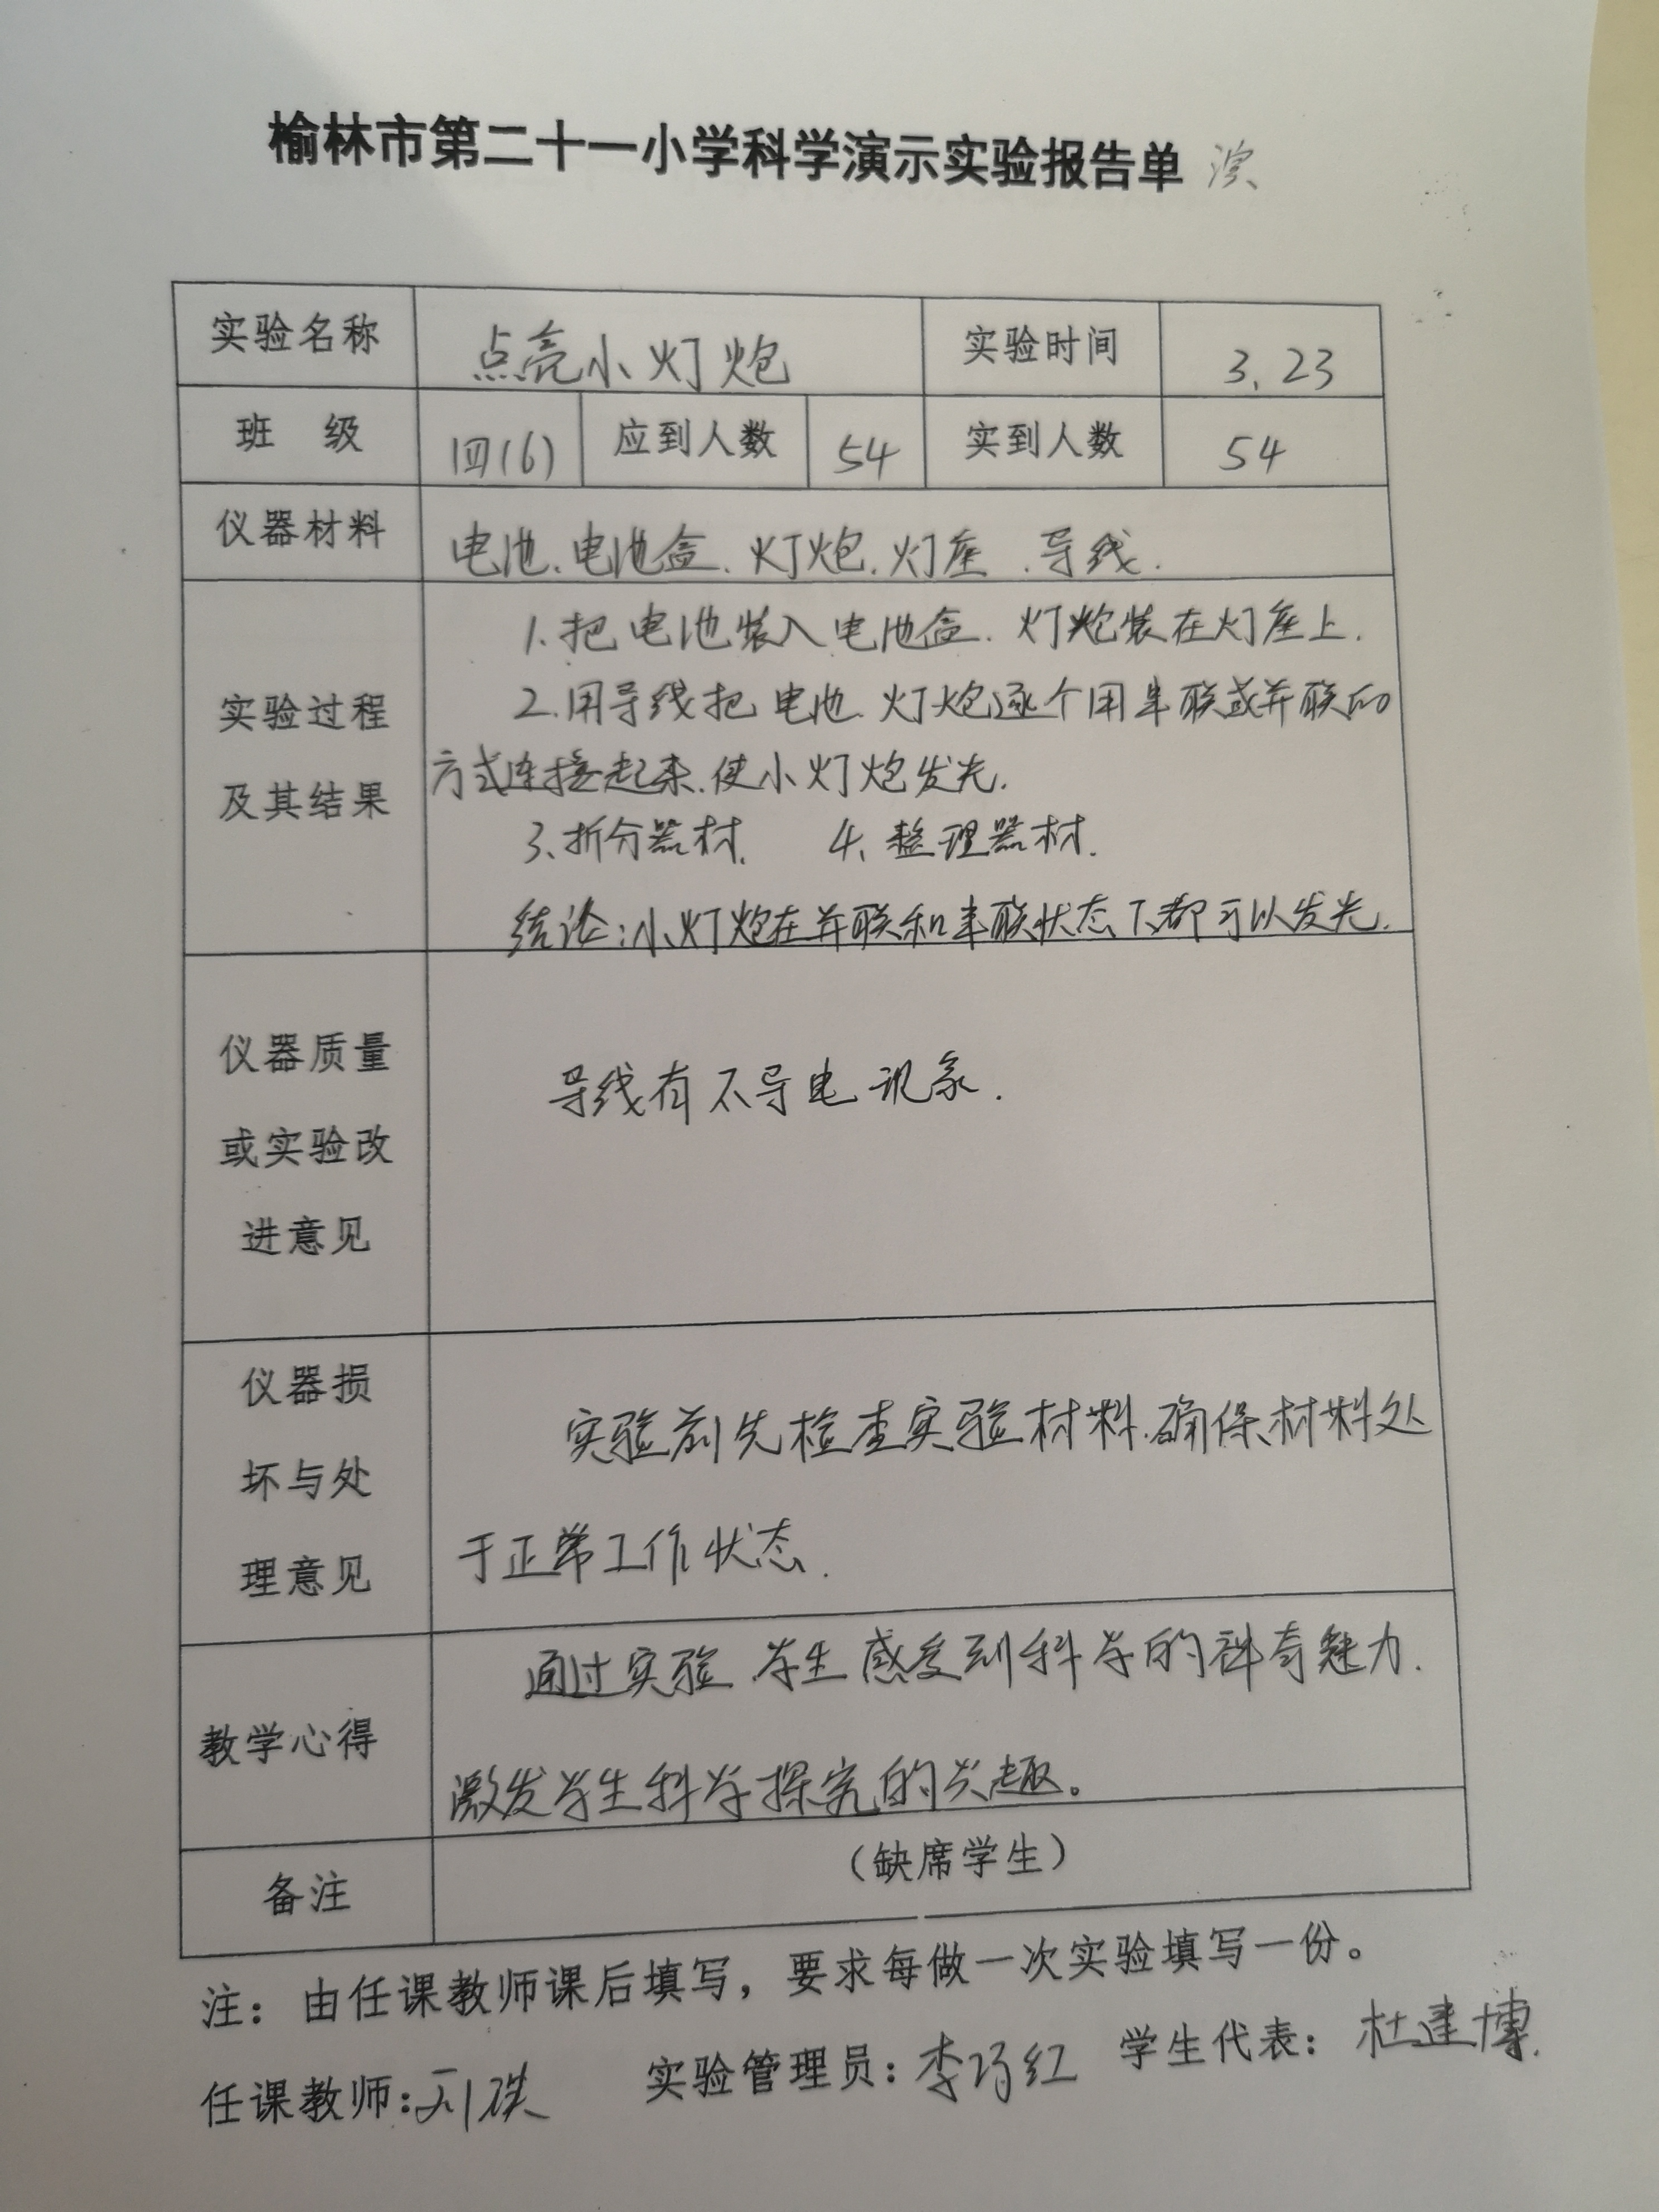 榆林市第二十一小学科学演示实验报告单 演
实验名称 点亮小灯炮 实验时间 3.23
班 级 四(6) 应到人数 54 实到人数 54
仪器材料 电池.电池盒.灯炮.灯座.导线.
实验过程
及其结果
1.把电池装入电池盒.灯炮装在灯座上.
2.用导线把电池.灯炮逐个用串联或并联的
方式连接起来.使小灯炮发光.
3、拆分器材. 4、整理器材.
结论:小灯炮在并联和串联状态下都可以发光.
仪器质量
或实验改
进意见
导线有不导电现象.
仪器损
坏与处
理意见
实验前先检查实验材料.确保材料处
于正常工作状态.
教学心得
通过实验.学生感受到科学的神奇魅力.
激发学生科学探究的兴趣。
备注 （缺席学生）
注：由任课教师课后填写，要求每做一次实验填写一份。
任课教师:刘 实验管理员:李巧红 学生代表:杜建博.